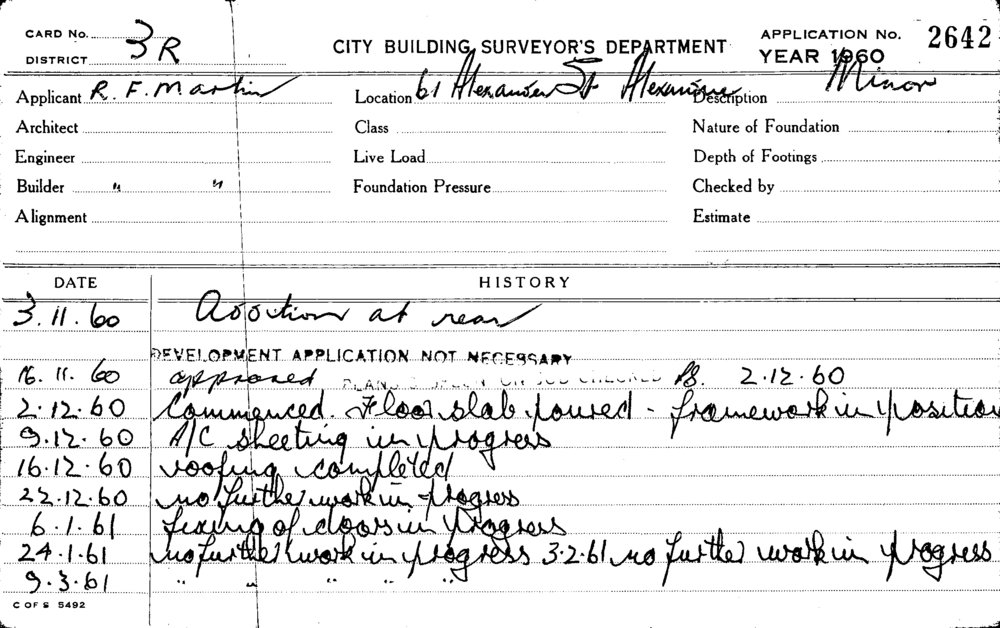 CARD No.
DISTRICT 3R
CITY BUILDING SURVEYOR'S DEPARTMENT
APPLICATION No. 2642
YEAR 1960
Applicant R. F. Martin
Location 61 Alexander St Alexandria
Description Minor
Architect
Class
Nature of Foundation
Engineer
Live Load
Depth of Footings
Builder " "
Foundation Pressure
Checked by
Alignment
Estimate
DATE HISTORY
3.11.60 Addition at rear
DEVELOPMENT APPLICATION NOT NECESSARY
16.11.60 approved PLANS & SPECN ON JOB CHECKED 2.12.60
2.12.60 Commenced. Floor slab poured - framework in position
9.12.60 A/C sheeting in progress
16.12.60 roofing completed
22.12.60 no further work in progress
6.1.61 fixing of doors in progress
24.1.61 no further work in progress 3.2.61 no further work in progress
9.3.61 " " " " "
C OF S 5492